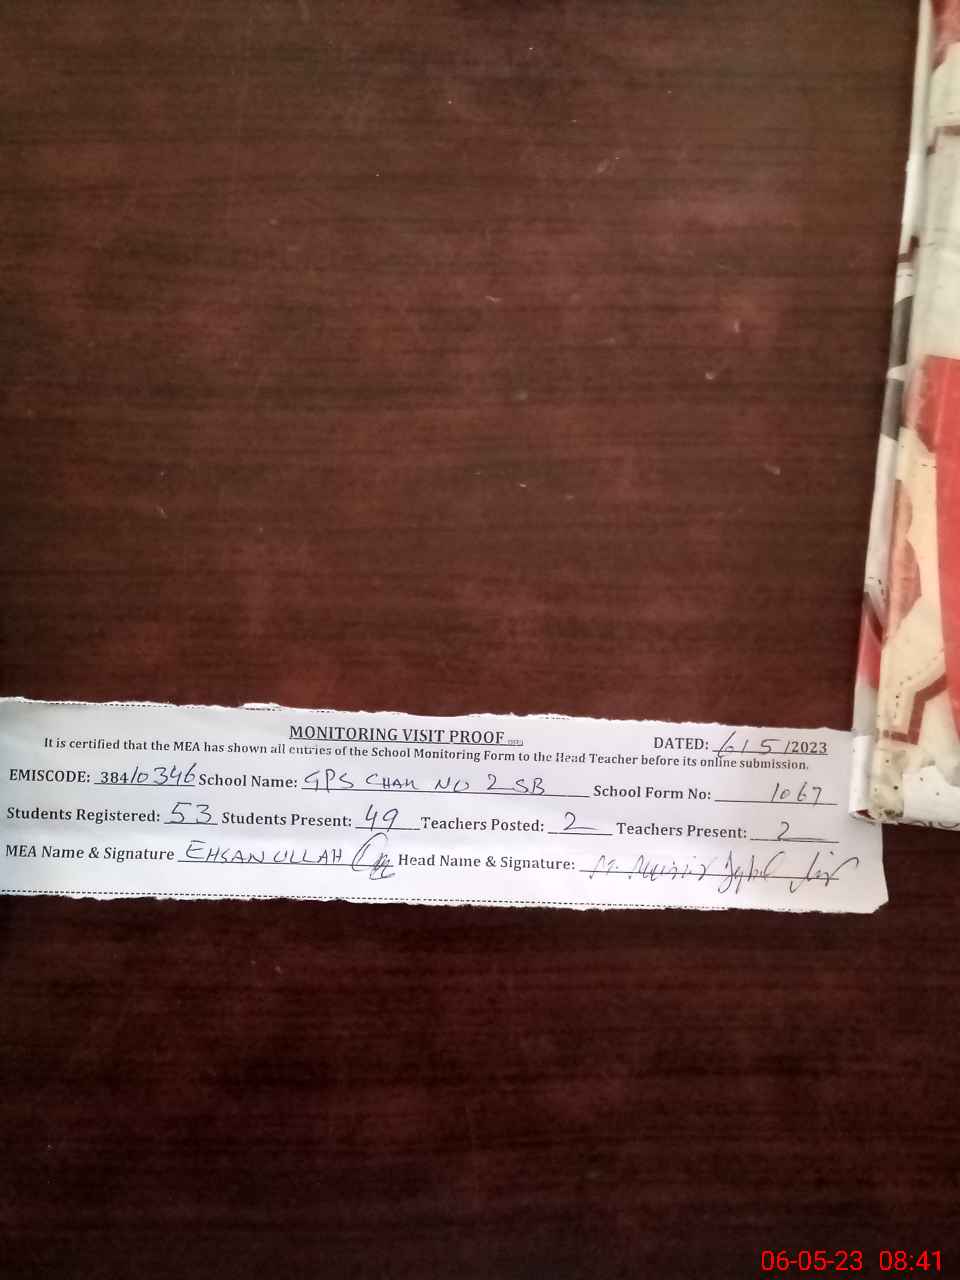 MONITORING VISIT PROOF
DATED: 6/5/2023
It is certified that the MEA has shown all entries of the School Monitoring Form to the Head Teacher before its online submission.
EMISCODE: 38410346 School Name: GPS CHAK NO 2 SB School Form No: 1067
Students Registered: 53 Students Present: 49 Teachers Posted: 2 Teachers Present: 2
MEA Name & Signature EHSAN ULLAH Head Name & Signature:
06-05-23 08:41